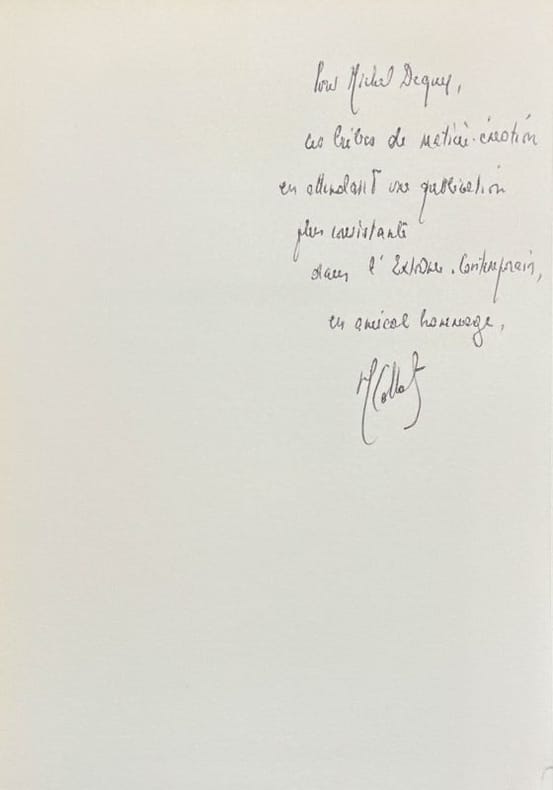 Pour Michel Deguy,
ces bribes de matière-émotion
en attendant une publication
plus consistante
dans l'Extrême-Contemporain,
en amical hommage,
M Collot